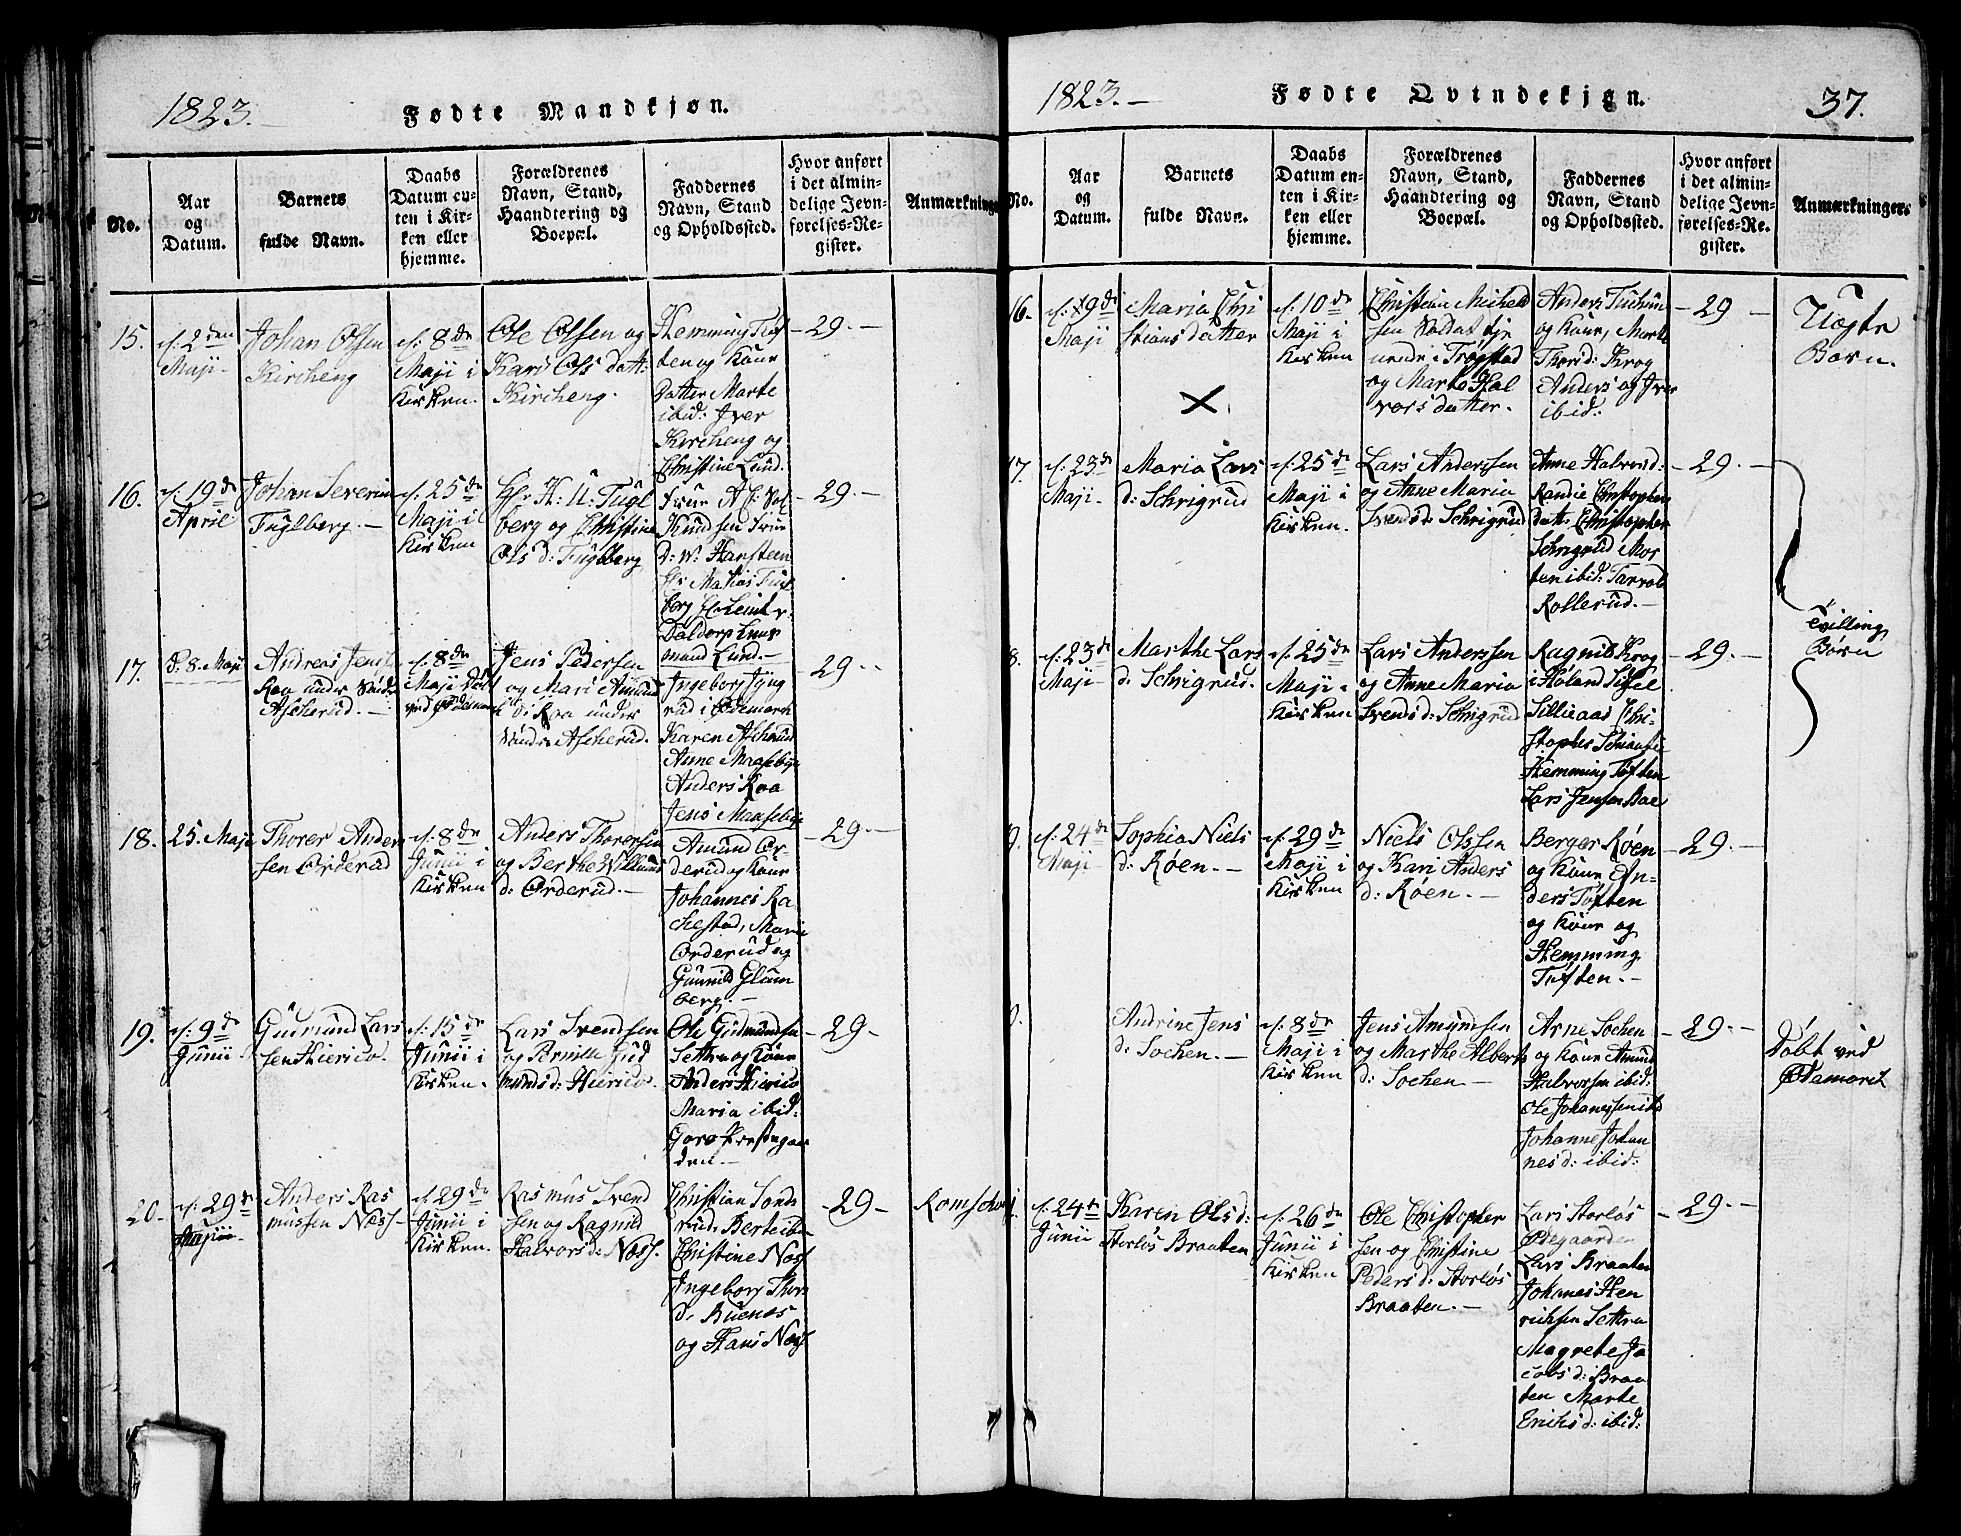 1823.
Fødte Mandkjøn.
No.
Aar
og
Datum.
Barnets
fulde Navn.
Daabs
Datum en-
ten i Kir-
ken eller
hjemme.
Forældrenes
Navn, Stand,
Haandtering og
Boepæl.
Faddernes
Navn, Stand
og Opholdssted.
Hvor anført
i det almin-
delige Jevn-
førelses-Re-
gister.
Anmærkninger
15.
d: 2den
Maji-
Johan Olsen
Kircheng
d: 8de
Maji i
Kirken.
Ole Olsen og
Kari Ols datt:
Kircheng.
Hemming Tuf
ten og Kone
Datter Marte
ibid: Iver
Kircheng og
Christine Lund.
- 29. -
16.
d: 19de
April
Johan Severin
Fuglberg. -
d: 25de
Maji i
Kirken
Hr K: U: Fugl
berg og Christine
Ols d: Fuglberg
Knudsen Frue
d: v: Hansteen
Hr Mathias Fugl
berg
mand Lund. -
- 29. -
17.
d. 8. Maji
Andreas Jens
Raa under
Ascherud. -
d: 8de
Maji
Jens Pedersen
og Mari Amund
d: Raa under
Ascherud.
Ingeborg
rud i Ødemark
Karen Ascherud
Anne Maaseby
Anders Raa
Jens Maaseby
29. -
18.
25. Maji
Thorer Ander
sen Orderud
d: 8de
Junii i
Kirken
Anders Thorersen
og Berthe Willum
d: Orderud. -
Amund Or-
derud og Kone
Johannes Ra
chestad, Marie
Orderud og
Gunnild Glom
berg. -
- 29. -
19.
d: 9de
Junii
Gudmund Lars
sen Hierico.
d: 15de
Junii i
Kirken.
Lars Svendsen
og Pernille Gud
munds d: Hierico.
Ole Gudmundsen
Settre og Kone
Anders Hierico
Maria ibid:
Goro Prestegaar
den -
- 29 -
20.
d: 29de
Anders Ras
mussen Næss.
d: 29de
Junii i
Kirken.
Rasmus Svend
sen og Ragnild
Halvors d: Næss.
Christian Sand
rud. Berte ibm
Christine Næss
Ingeborg Thor
d: Buenæs
og Hans Næss
- 29 -
1823. -
Fødte Qvindekjøn.
37.
No.
Aar
og
Datum.
Barnets
fulde Navn.
Daabs
Datum en-
ten i Kir-
ken eller
hjemme.
Forældrenes
Navn, Stand,
Haandtering og
Boepæl.
Faddernes
Navn, Stand
og Opholdssted.
Hvor anført
i det almin-
delige Jevn-
førelses-Re-
gister.
Anmærkninger.
16.
d: 9de
Maji
Maria Chri
stians datter
d: 10de
Maji i
Kirken
Christian Michel
sen Soldat tje
nende i Trøgstad
og Marte Hal
vors datter.
Anders Tuchun
og Kone, Marte
Thors d: Krog
Anders og Iver
ibid:
- 29 -
Uægte
Børn.
17.
d: 23de
Maji-
Maria Lars
d: Schrigrud
d: 25de
Maji i
Kirken
Lars Anderssen
og Anne Maria
Svends d: Schrigrud
Anne Halvors d:
Randie Christophers
datt. Christopher
Schrigrud Mor
ten ibid: Tarrald
Rollerud. -
- 29. -
8.
d: 23de
Maji-
Marthe Lars
d: Schrigrud.
d: 25de
Maji i
Kirken
Lars Anderssen
og Anne Maria
Svends d: Schrigrud
Ragnild Krog
i Høland
Lillieaas Chri-
stopher
Hemming Tøften
Lars Jensen
- 29. -
Tvilling
Børn
9.
d: 24de
Maji
Sophia Niels
d: Røen. -
d: 29de
Maji i
Kirken
Niels Olssen
og Kari Anders
d: Røen. -
Berger Røen
og Kone An-
ders Tøften
og Kone og
Hemming
Tøften. -
- 29. -
0.
Andrine Jens
d: Sochen. -
d: 8de
Maji i
Kirken
Jens Amundsen
og Marthe Alberts
d: Sochen -
Arne Sochen
og Kone Amund
Halvorsen ibid:
Ole Johanssen ibd
Johanne Johan
nes d: ibid:
- 29. -
Døbt ved
Ødemark
Romschou
d: 24de
Junii
Karen Ols d:
Storløs Braaten
d: 26de
Junii i
Kirken
Ole Christopher
sen og Christine
Peders d: Storløs
Braaten. -
Lars Storløs
Ødegaarden
Lars Braaten
Johanes Hen
richsen Settre
Magrete Ja
cobs d: Braa
ten Marte
Erichs d: ibid:
- 29. -